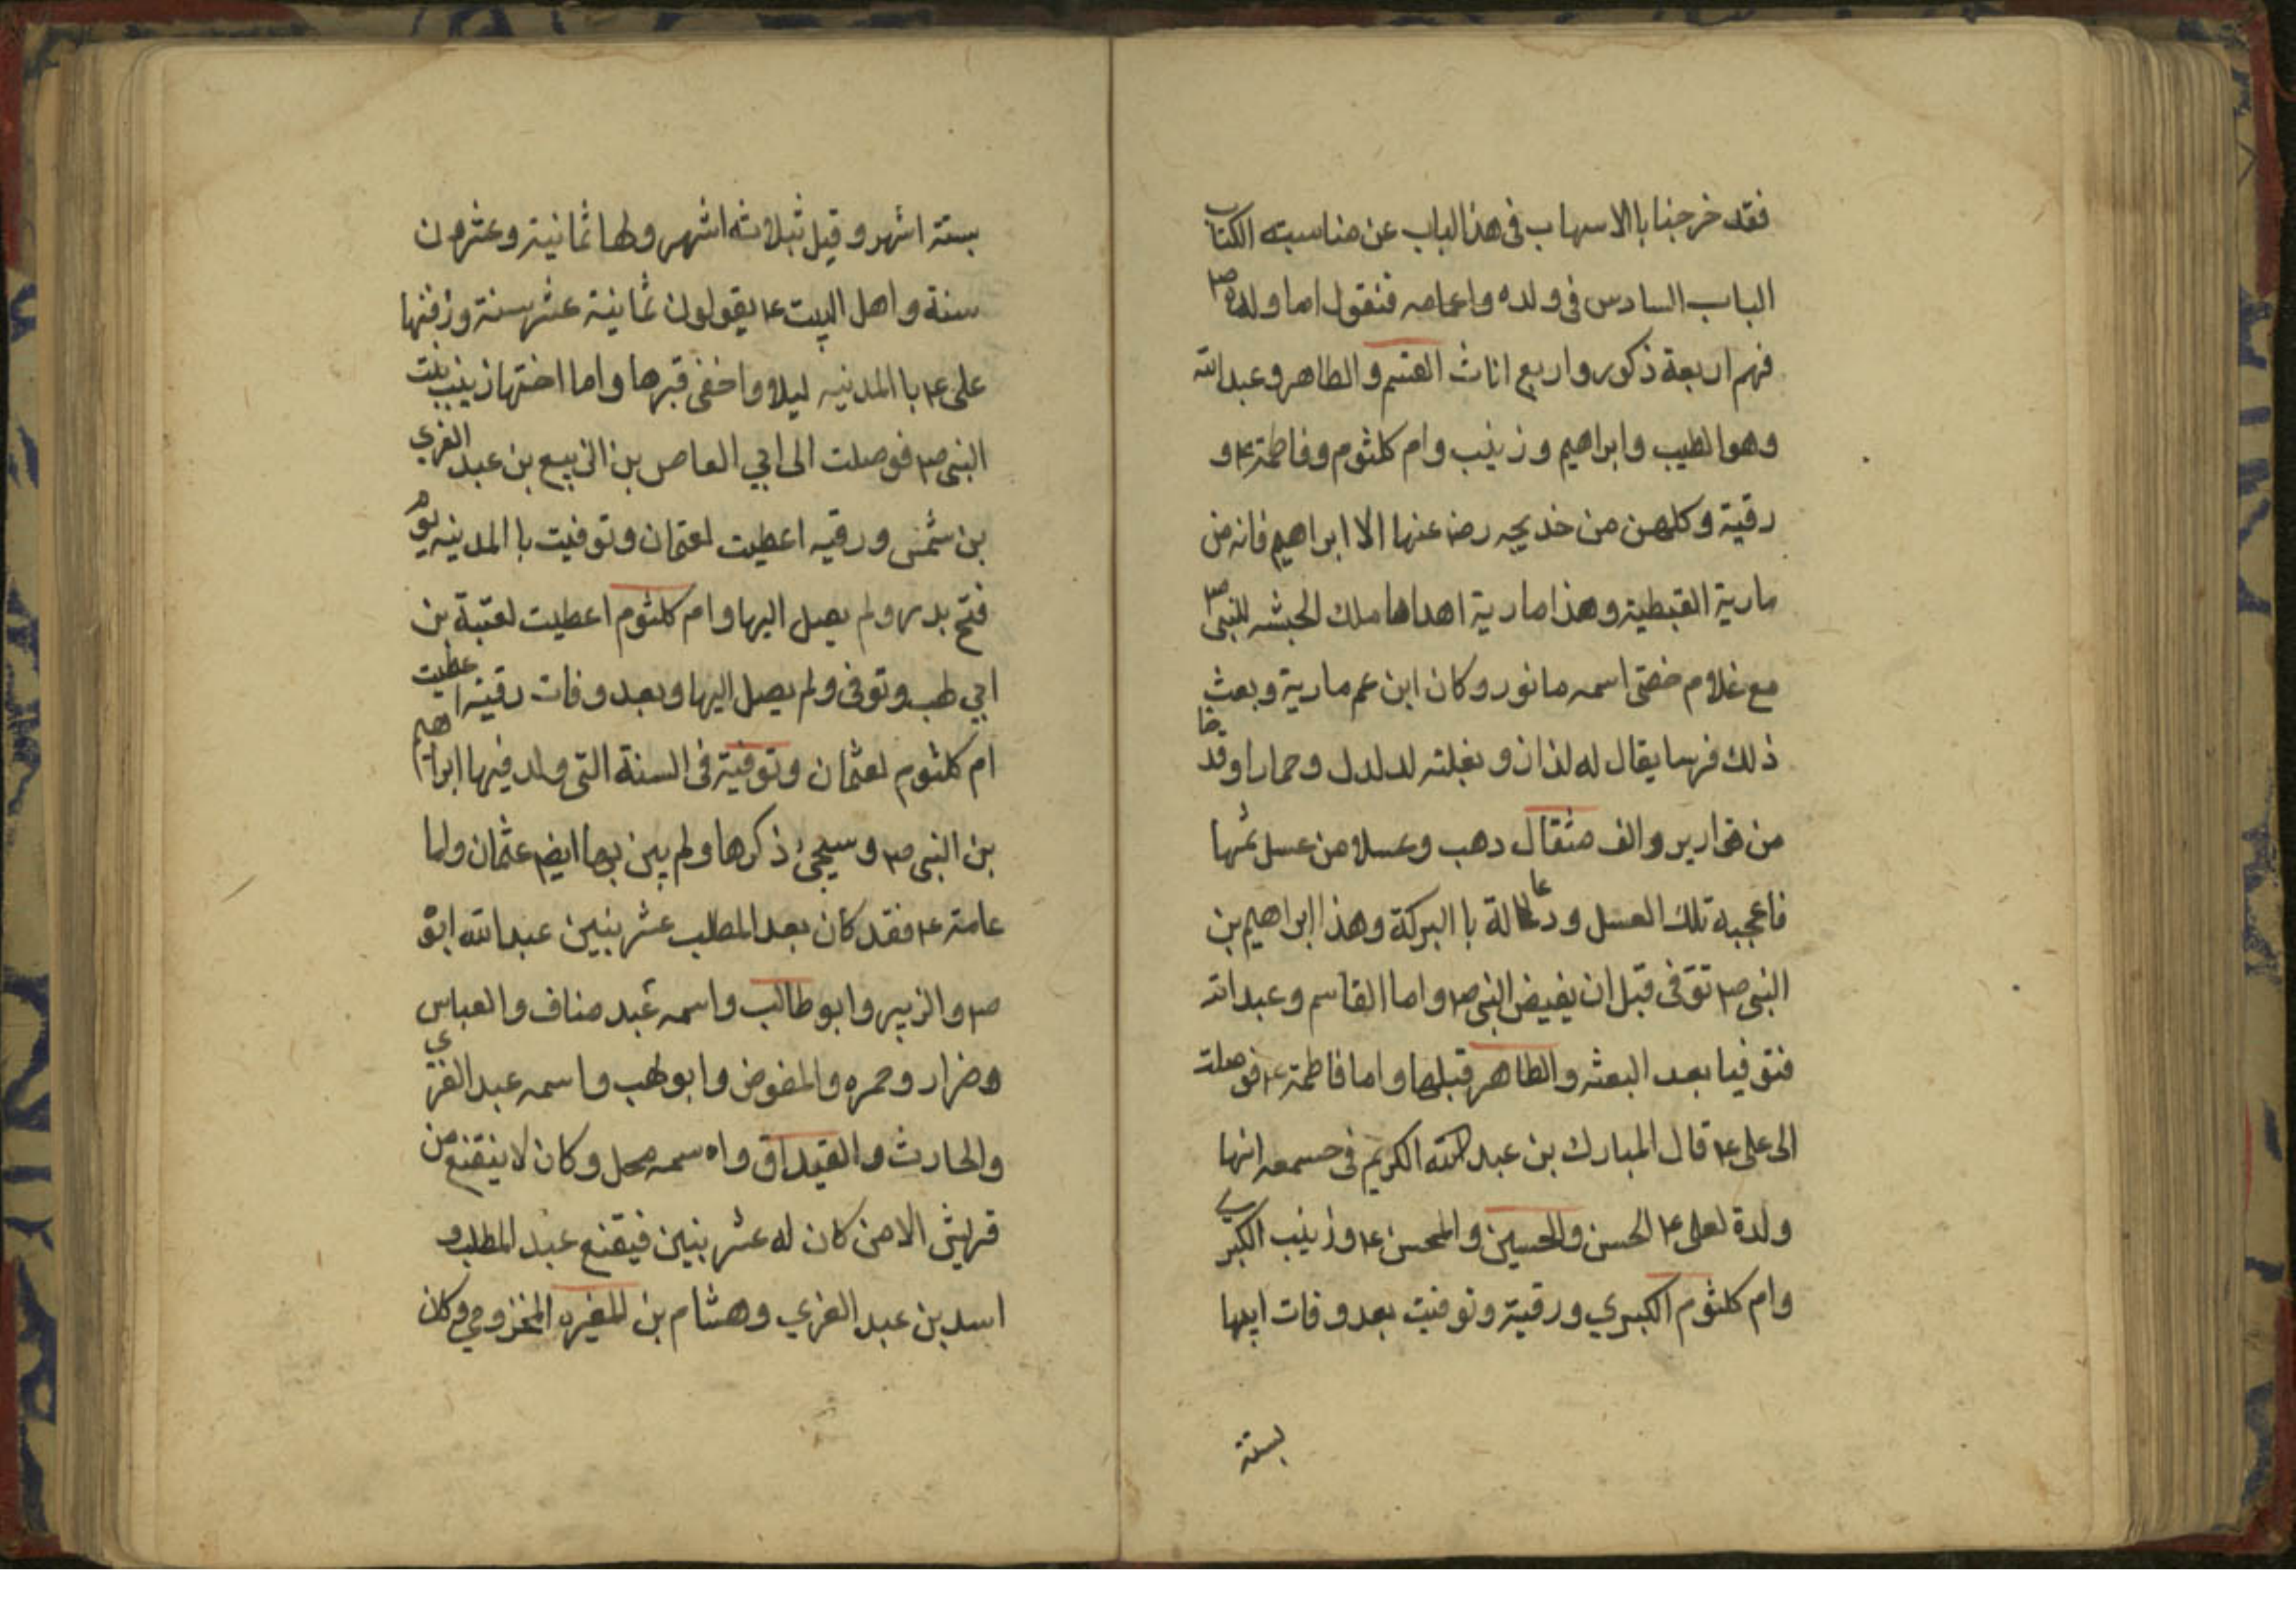 فقد خرجنا باالاسهاب فى هذالباب عن مناسبته الكتاب
الباب السادس فى ولده واعامه فنقول اما ولده ص
فهم اربعة ذكور واربع اناث القسم والطاهر وعبدالله
وهوالطيب وابراهيم وزينب وام كلثوم وفاطمة ع و
رقية وكلهن من خديجه رض عنها الا ابراهيم فانه من
مارية القبطية وهذا مارية اهداها ملك الحبشه للنبى ص
مع غلام خصتى اسمه مانور وكان ابن عم مارية وبعث
ذلك فرسا يقال له لذاز وبغلته لدلدل وحمارا وقدحا
من قوارير والف مثقال دهب وعسلا من عسل
فاعجبه تلك العسل ودعا لة باالبركة وهذا ابراهيم بن
النبى ص توّفى قبل ان يفيض النبى ص واما القاسم وعبدالله
فتوفيا بعد البعثه والطاهر قبلها واما فاطمة ع فوصلت
الى على ع قال المبارك بن عبد الله الكريم فى انها
ولدة لعلى ع الحسن والحسين والمحسن ع وزينب الكبرى
وام كلثوم الكبيري ورقية وتوفيت بعد وفات ابيها
بستة
بستة اشهر وقيل بثلاثه اشهر ولها ثمانية وعشرون
سنة واهل البيت ع يقولون ثمانية عشر سنة ودفنها
على ع باالمدنيه ليلا واخفى قبرها واما اختها زينب بنت
النبى ص فوصلت الى ابي العاص بن الربيع بن عبد الغري
بن شمس ورقيه اعطيت لعثمان وتوفيت باالمدينه يوم
فتح بدر ولم يصل اليها وام كلثوم اعطيت لعتبة بن
ابي لهب وتوفى ولم يصل اليها وبعد وفات رقية اعطيت
ام كلثوم لعثمان وتوفية فى السنة التى ولد فيها ابراهيم
بن النبى ص وسيجئ ذكرها ولم يبن بها ايضا عثمان ولما
عامته ع فقد كان بعد المطلب عشر بنين عبدالله ابو
ص والزبير وابو طالب واسمه عبد مناف والعباس
وضرار وحمزه والمفوض وابو لهب واسمه عبد الغزي
والحارث والقيداق واه سمه محل وكان لا ينقنع من
قريش الا من كان له عشر بنين فيقنع عبد المطلب و
اسد بن عبد الغزي وهشام بن المغيره المخزومي وكان